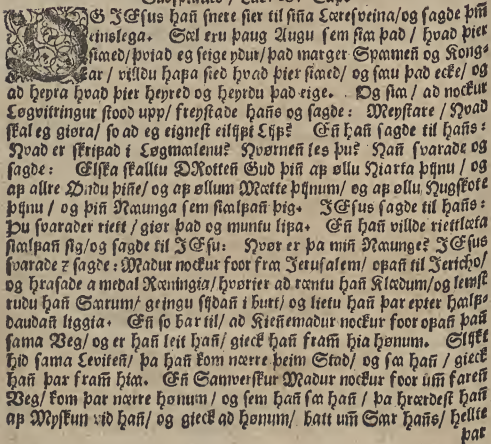 OG JEsus hañ snere sier til siña Læresveina/og sagde þm̃
einslega. Sæl eru þaug Augu sem siæ þad / hvad þier
siæed/þviad eg seige ydur/þad marger Spæmeñ og Kong-
ar / villdu hafa sied hvad þier siæed/ og sæu þad ecke/ og
ad heyra hvad þier heyred og heyrdu þad eige. Og siæ / ad nockur
Løgvitringur stood upp/ freystade hañs og sagde: Meystare / Hvad
skal eg giøra/ so ad eg eignest eilijft Lijf? Eñ hañ sagde til hañs:
Hvad er skrifad i Løgmælenu? Hvørneñ les þu? Hañ svarade og
sagde: Elska skalltu DRotteñ Gud þiñ af øllu Hiarta þijnu / og
af allre Øndu þiñe/ og af øllum Mætte þijnum/ og af øllu Hugskote
þijnu / og þiñ Næunga sem siælfañ þig. JEsus sagde til hañs:
Þu svarader riett / giør þad og muntu lifa. Eñ hañ villde riettlæta
siælfañ sig/og sagde til JEsu: Hvør er þa miñ Næunge? JEsus
svarade ꝛ sagde: Madur nockur foor fra Jerusalem/ ofañ til Jericho/
og hrasade a medal Ræningia/ hvørier ad ræntu hañ Klædum/og lemst
rudu hañ Særum/ geingu sijdañ i burt/ og lietu hañ þar epter hælf-
daudañ liggia. Eñ so bar til/ ad Kieñemadur nockur foor ofañ þañ
sama Veg/ og er hañ leit hañ/ gieck hañ framm̃ hia hønum. Slijkt
hid sama Leviteñ/ þa hañ kom nærre þeim Stad/ og sæ hañ / gieck
hañ þar fram hia. Eñ Samverskur Madur nockur foor um̃ fareñ
Veg/ kom þar nærre hønum/ og sem hañ sæ hañ / þa hrærdest hañ
af Myskun vid hañ/ og gieck ad hønum/ batt um̃ Sær hañs/ hellte
þar